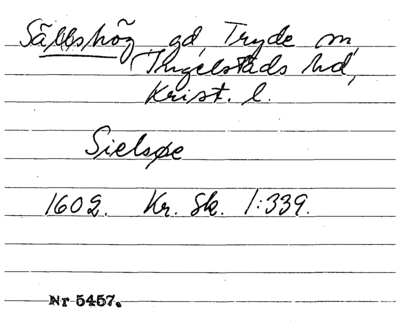 Sällshög gd, Tryde sn,
Ingelstads hd,
Krist. l.
Sielsøe
1602. Kr. Sk. 1:339.
Nr 5457.